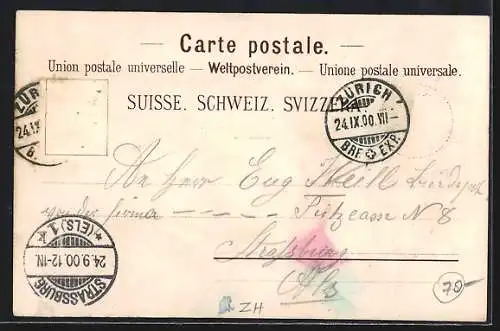 — Carte postale. —
Union postale universelle — Weltpostverein. — Unione postale universale.
SUISSE. SCHWEIZ. SVIZZERA.
ZÜRICH 7
24.IX.00.VII—
BRF. EXP.
ZÜR
24.IX
B
An Herr Eug
von der Firma — — — — N 8
Strassburg
Els
STRASSBURG
24.9.00.12-1N.
*(ELS)1 k
ZH
70